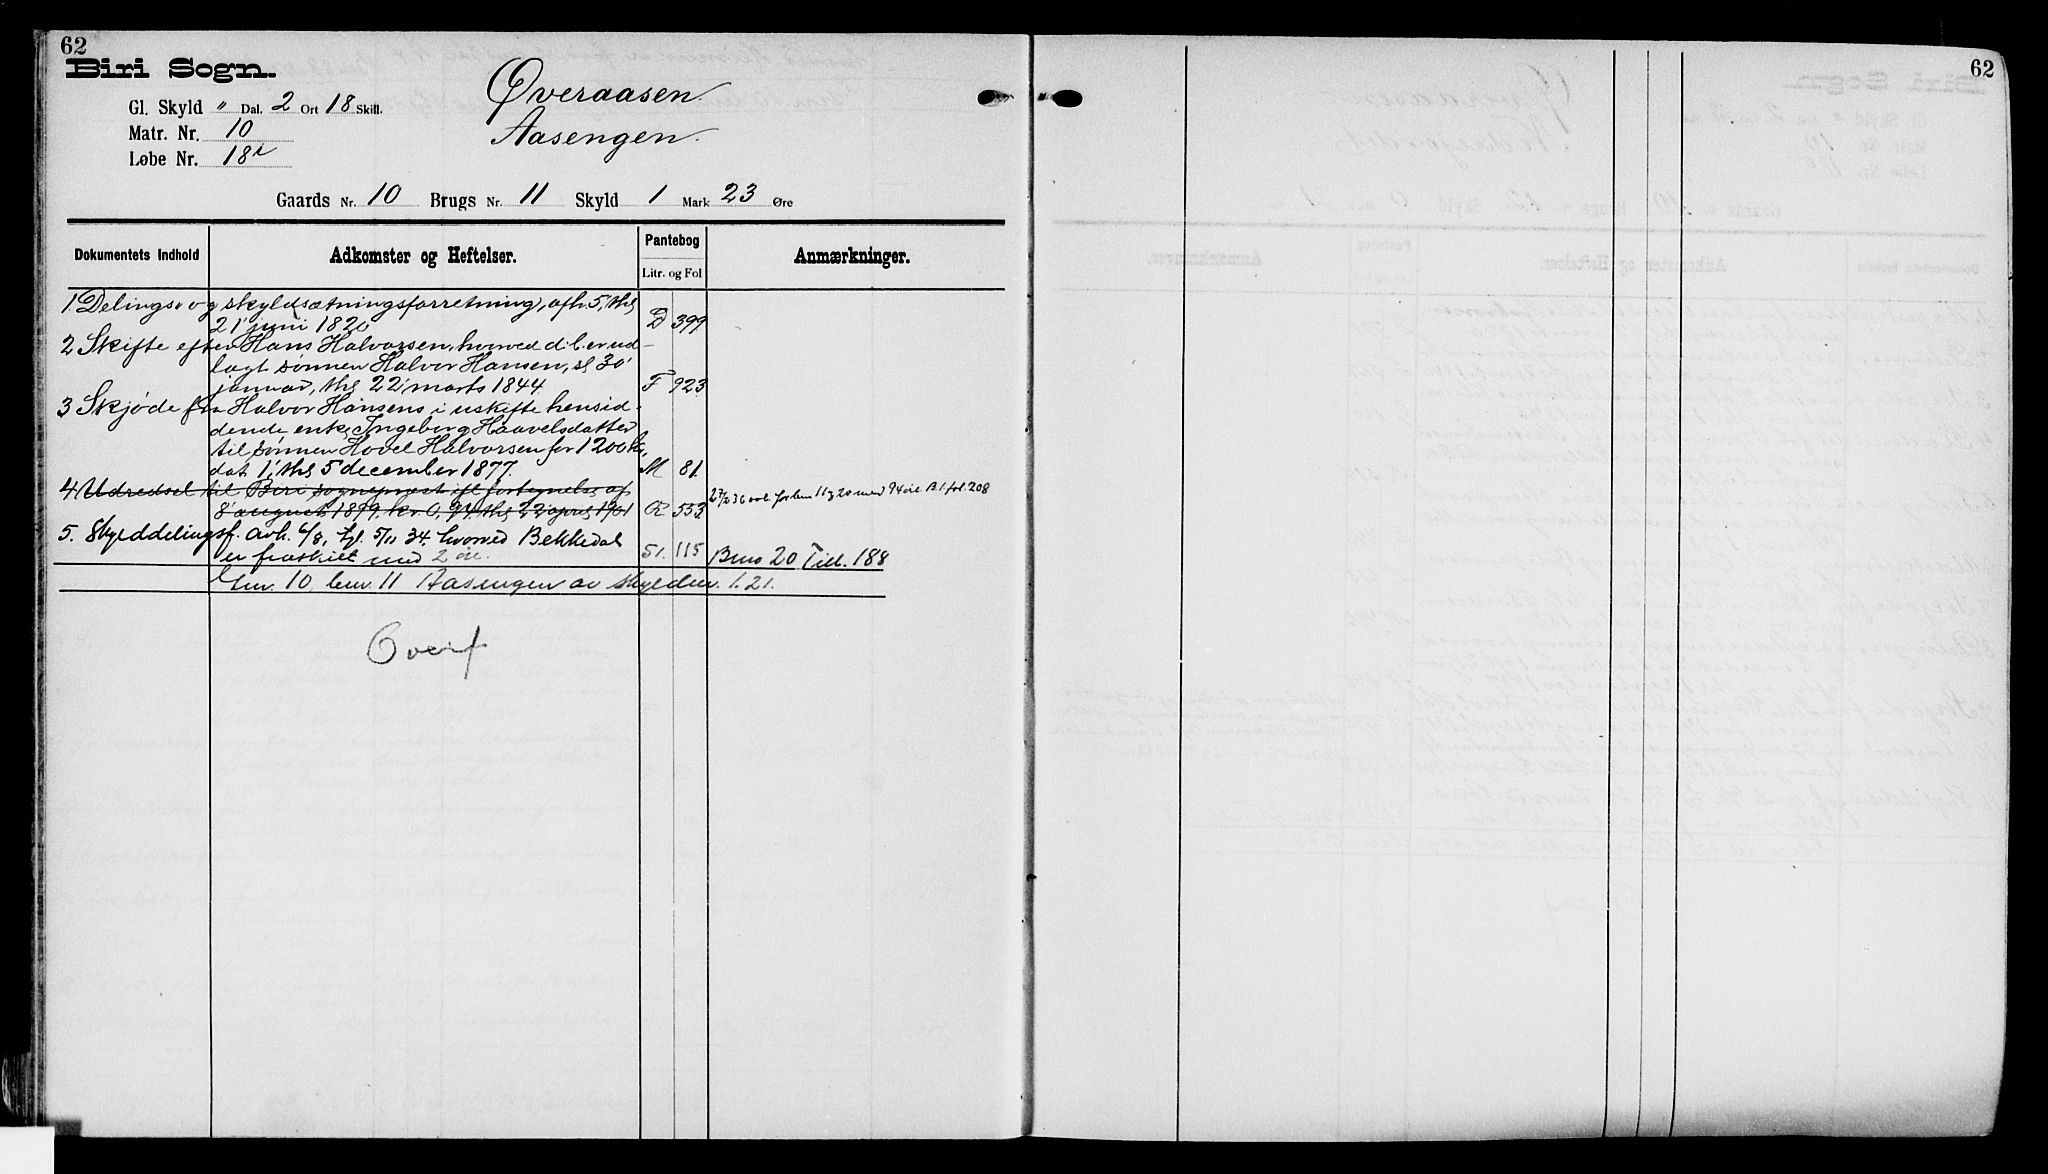 62
Biri Sogn.
Gl. Skyld " Dal. 2 Ort 18 Skill.
Øveraasen.
Aasengen.
Matr. Nr. 10
Løbe Nr. 18i
Gaards Nr. 10 Brugs Nr. 11 Skyld 1 Mark 23 Øre
Dokumentets Indhold Adkomster og Heftelser. Pantebog Litr. og Fol Anmærkninger.
1. Delings- og skyldsætningsforretning, afh. 5, thl
21' juni 1820 D 399
2 Skifte efter Hans Halvorsen, hvorved d. b. er ud-
lagt sønnen Halvor Hansen, sl 30'
januar, thl 22' marts 1844 F 923
3 Skjøde fra Halvor Hansens i uskifte hensid-
dende enke Ingeborg Haavelsdatter
til sønnen Hovel Halvorsen for 1200 kr,
dat 1', thl 5 december 1877. M 81.
4 Udredsel til Biri sogneprest ifl fortegnelse af
8' august 1899, kr 0,94, thl 22 april 1901 R. 553 27/2 36 avl. for bnr 11 og 20 med 94 øre B. 1. fol. 208
5. Skylddelingsf. avh. 6/8, tgl. 5/11 34. hvorved Bekkedal
er fraskilt med 2 øre. 51. 115 Bnr 20 Till. 188
Gnr. 10, bnr. 11 Aasengen av skyldm. 1.21.
Overf.
62